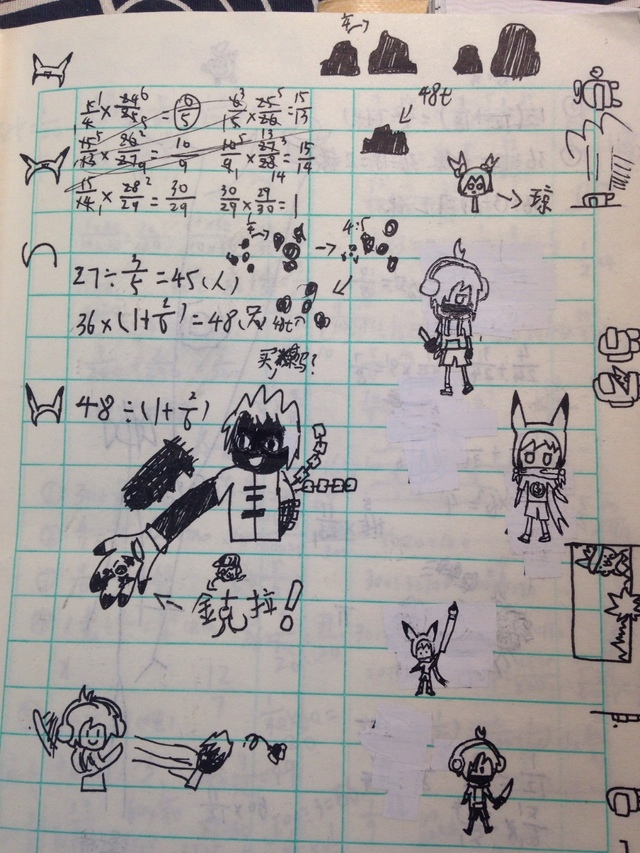 车→
48t
5/4 × 24/25 = 6/5 6/13 × 25/26 = 15/13
15/13 × 26/27 = 10/9 10/9 × 27/28 = 15/14
15/14 × 28/29 = 30/29 30/29 × 29/30 = 1
→ 琼
车→
4:5
27÷3/5=45(人)
36×(1+2/6)=48(
48t
买糖吗?
48÷(1+2/6)
金克拉!